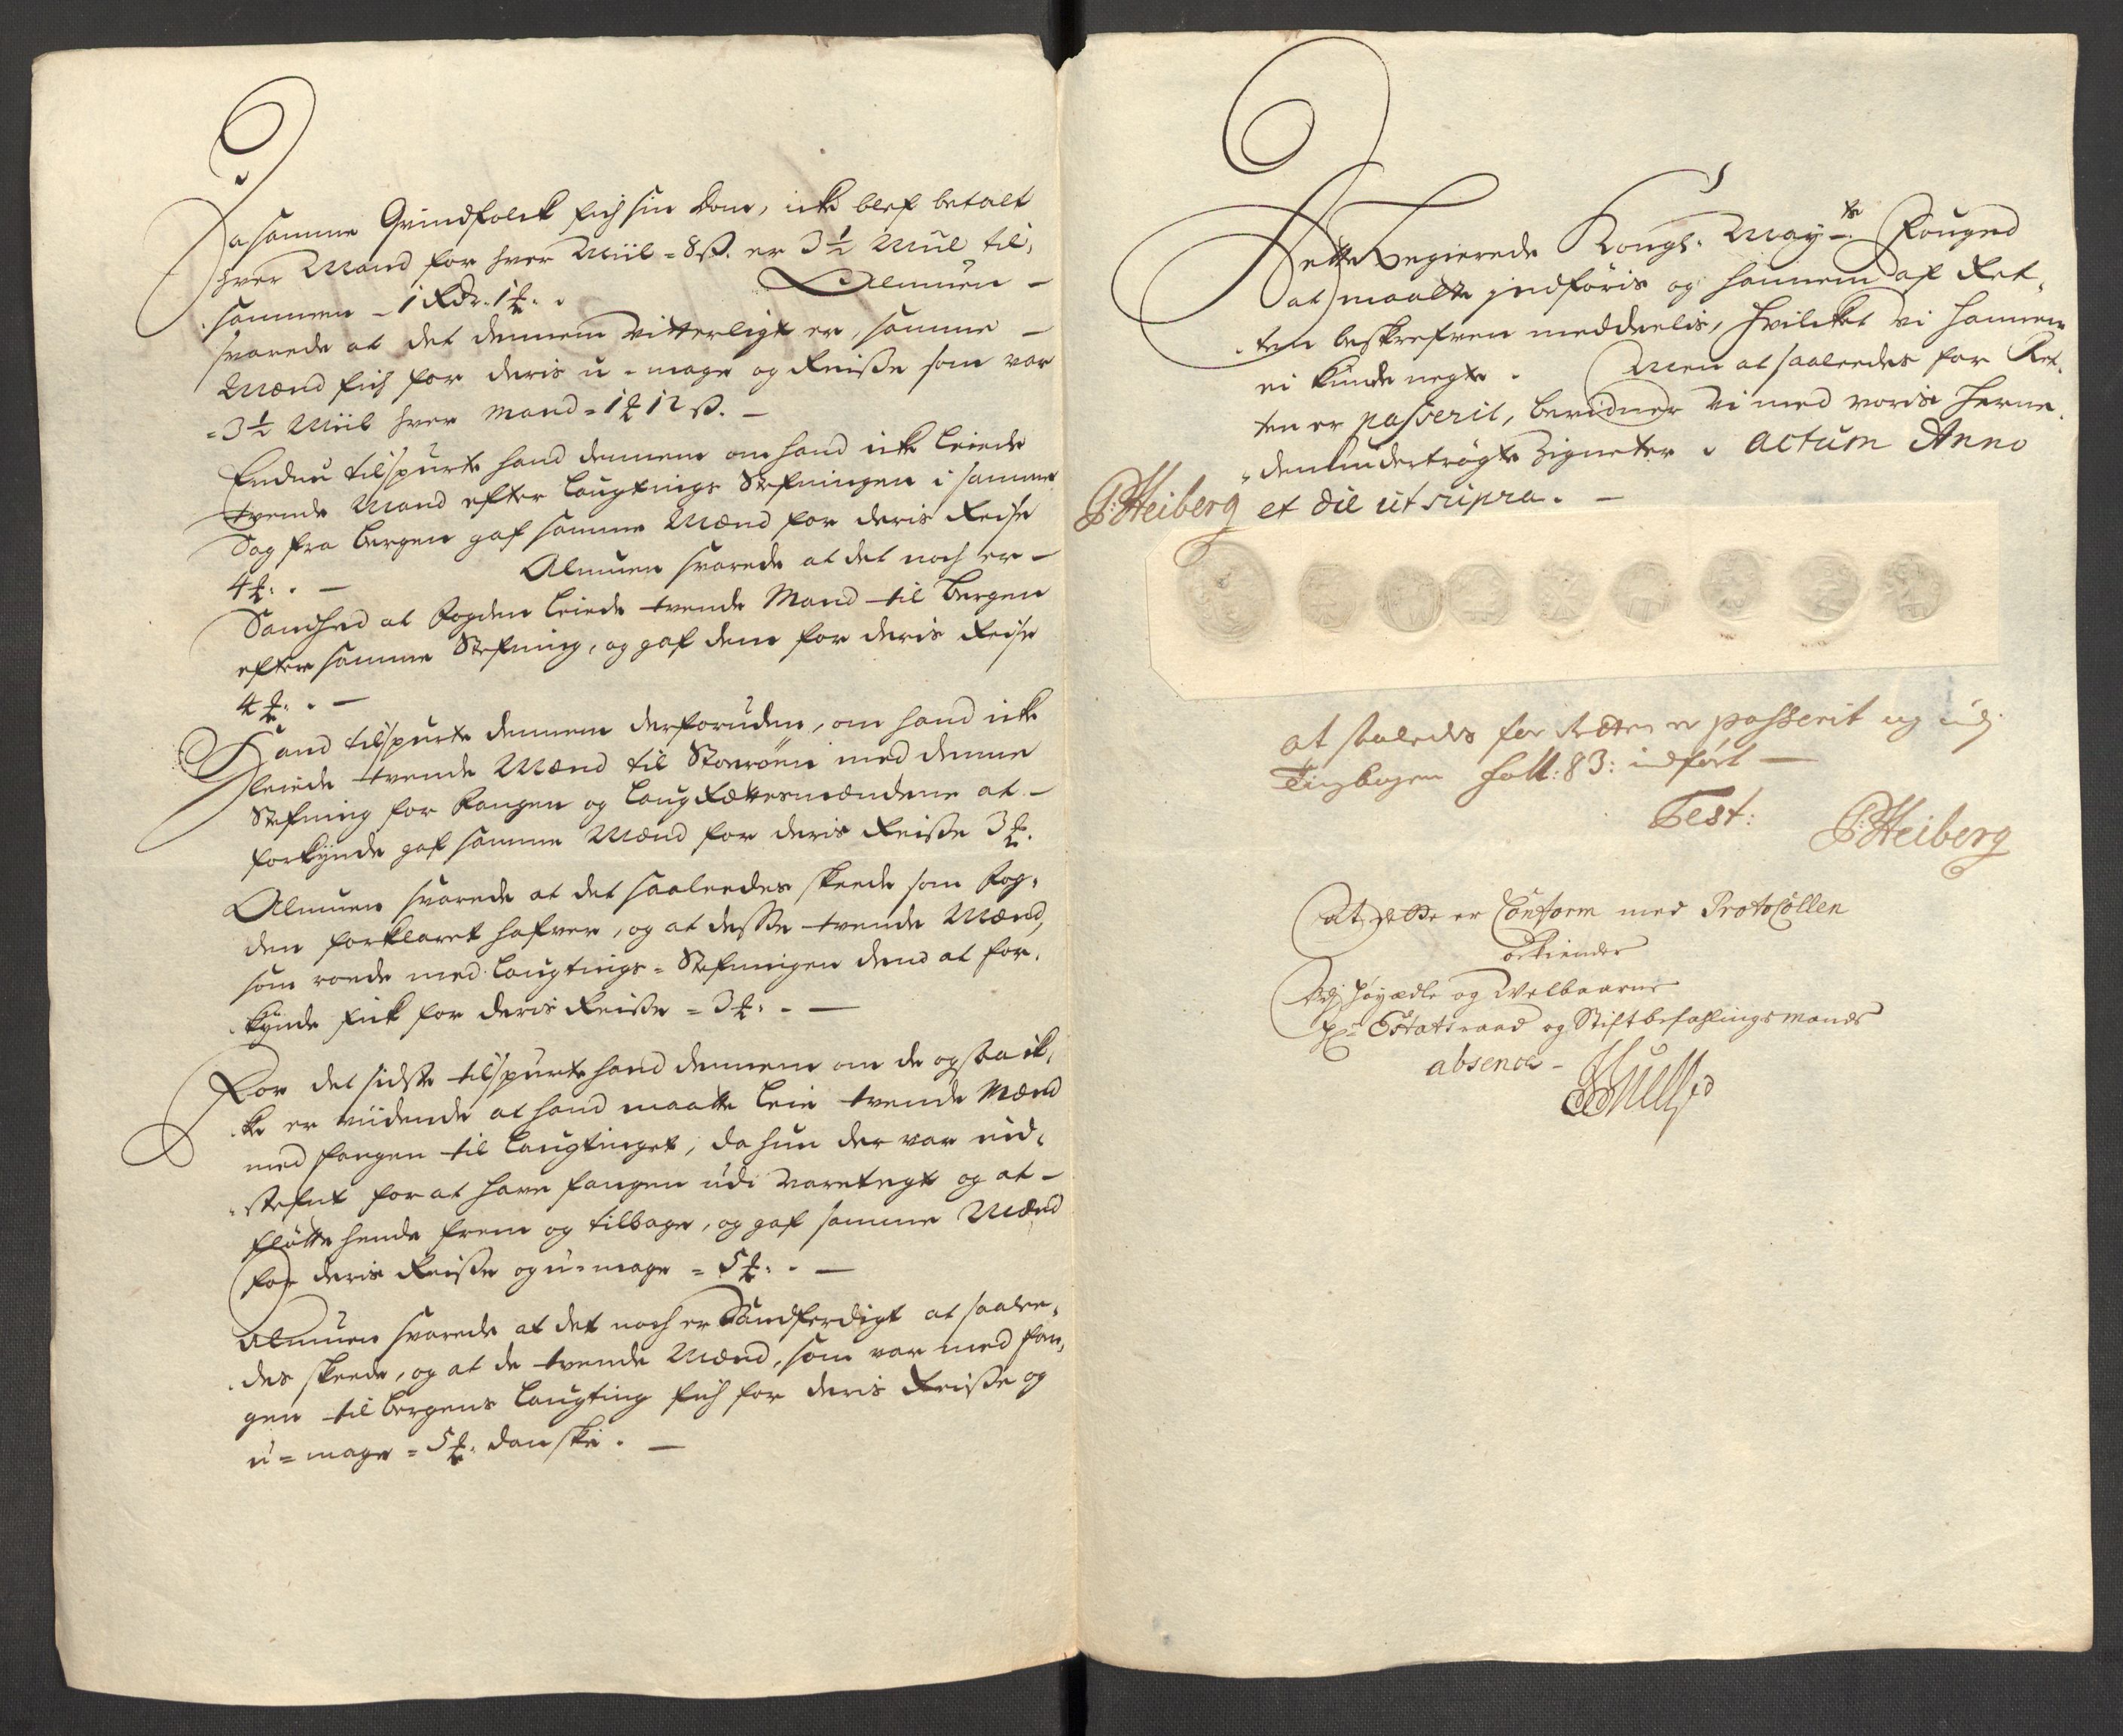 Da samme Qvindfolck fich sin dom, icke blef betalt
hver Mand for hver Miil = 8 ß. er 3½ Miil til,
sammen – 1 Rdr. 1 ꝉ. Almuen –
svarede at det dennem vitterligt er, samme –
Mænd fich for deris u-mage og Reisse som var
= 3½ Miil hver Mand = 1 ꝉ 12 ß. –
Endnu tilspurte hand dennem om hand icke leiede
tvende Mand efter Laugtings Stefningen i samme
Sag fra Bergen gaf samme Mænd for deris Reise
4 ꝉ: . – Almuen svarede at det noch er –
Sandhed at Fogden leiede tvende Mand til Bergen
efter samme Stefning, og gaf dem for deris Reise
4 ꝉ: . –
Hand tilspurte dennem derforuden, om hand icke
leiede tvende Mænd til med denne
Stefning for Fangen og Laugrettesmændene at –
forkynde gaf samme Mænd for deris Reisse 3 ꝉ.
Almuen svarede at det saaleedes skeede som Fog,
den forklaret hafver, og at desse tvende Mænd,
som roede med Laugtings = Stefningen dend at for,
kynde fick for deris Reisse = 3 ꝉ: . –
For det sidste tilspurte hand dennem om de ogsaa ik,
ke er viidende at hand maatte leie tvende Mænd
med fangen til Laugtinget, da hun der var ind,
stefnt for at have fangen udi varetegt og at –
fløtte hende frem og tilbage, og gaf samme Mænd
for deris Reisse og u-mage = 5 ꝉ: . –
Almuen svarede at det noch er Sandferdigt at saalee,
des skeede, og at de tvende Mænd, som var med fan,
gen til Bergens Laugting fich for deris Reisse og
u = mage = 5 ꝉ: danske . –
Dette begierede Kongl: May.ts Fouged
at maatte jndføris og hannem af Ret,
ten beskrefven meddeelis, hvilcket vi hannem
ei kunde negte . Men at saaleedes for Ret,
ten er passerit, bevidner vi med voris herne,
den undertrøgte Zigneter . Actum Anno
et die ut supra . –
P: Heiberg
at saaledes for Retten er passerit og udj
Tingbogen foll: 83: indført –
Test:
P: Heiberg
at dette er Conform med Protocollen
Udj Høyædle og Welbaarne
Hr Etatsraad og Stiftbefahlingsmands
absence –